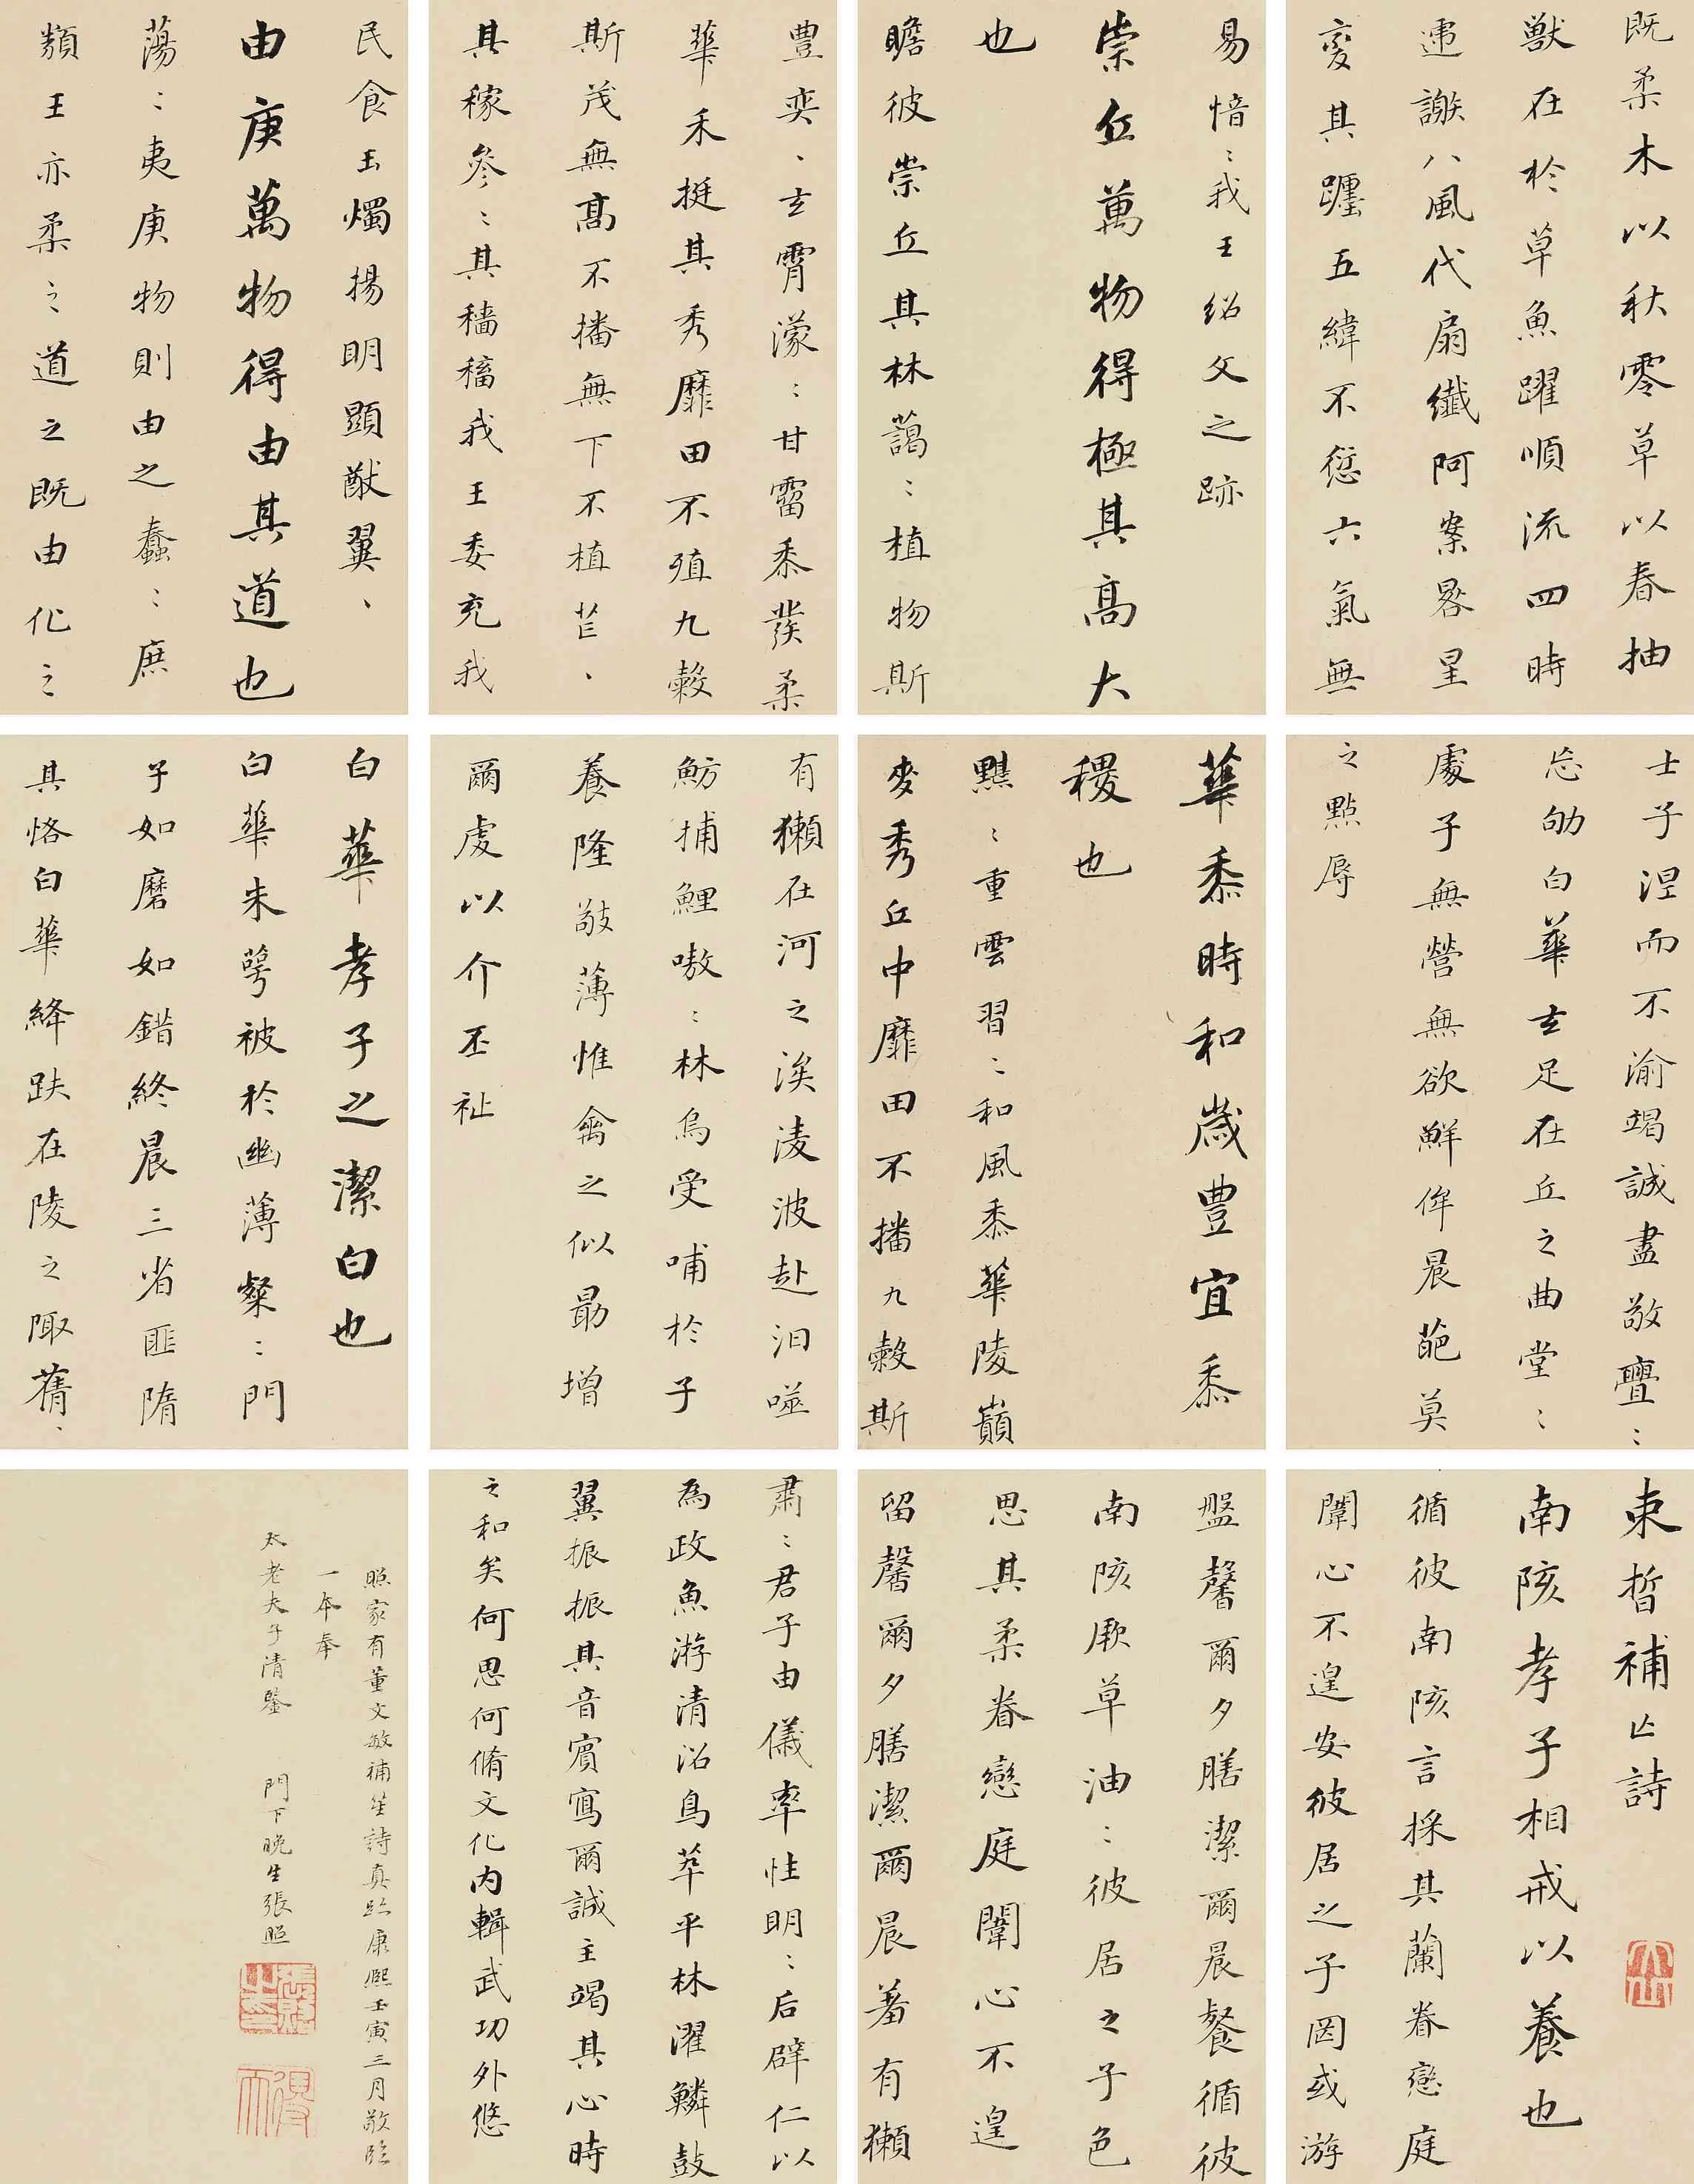 既柔木以秋零草以春抽
獸在於草魚躍順流四時
遞謝八風代扇纖阿案晷星
變其躔五緯不愆六氣無
易愔〻我王紹文之跡
崇丘萬物得極其高大
也
瞻彼崇丘其林藹〻植物斯
豊奕〻玄霄濛〻甘霤黍發柔
華禾挺其秀靡田不殖九穀
斯茂無高不播無下不植芒〻
其稼參〻其穡稸我王委充我
民食玉燭揚明顯猷翼〻
由庚萬物得由其道也
蕩〻夷庚物則由之蠢〻庶
類王亦柔之道之既由化之
士子涅而不渝竭誠盡敬亹〻
忘劬白華玄足在丘之曲堂〻
處子無營無欲鮮侔晨葩莫
之點辱
華黍時和歲豊宜黍
稷也
黮〻重雲習〻和風黍華陵巔
麥秀丘中靡田不播九穀斯
有獺在河之涘淩波赴汨噬
魴捕鯉嗷〻林烏受哺於子
養隆敬薄惟禽之似勗增
爾虔以介丕祉
白華孝子之潔白也
白華朱萼被於幽薄粲〻門
子如磨如錯終晨三省匪隋
其恪白華絳趺在陵之陬蒨〻
束皙補亡詩
南陔孝子相戒以養也
循彼南陔言採其蘭眷戀庭
闈心不遑安彼居之子罔或游
盤馨爾夕膳潔爾晨餐循彼
南陔厥草油〻彼居之子色
思其柔眷戀庭闈心不遑
留馨爾夕膳潔爾晨羞有獺
肅〻君子由儀率性明〻后辟仁以
為政魚游清沼鳥萃平林濯鱗鼓
翼振振其音賓寫爾誠主竭其心時
之和矣何思何脩文化內輯武功外悠
照家有董文敏補笙詩真跡康熙壬寅三月敬臨
一本奉
太老夫子清鑒 門下晚生張照
張照之印
得天